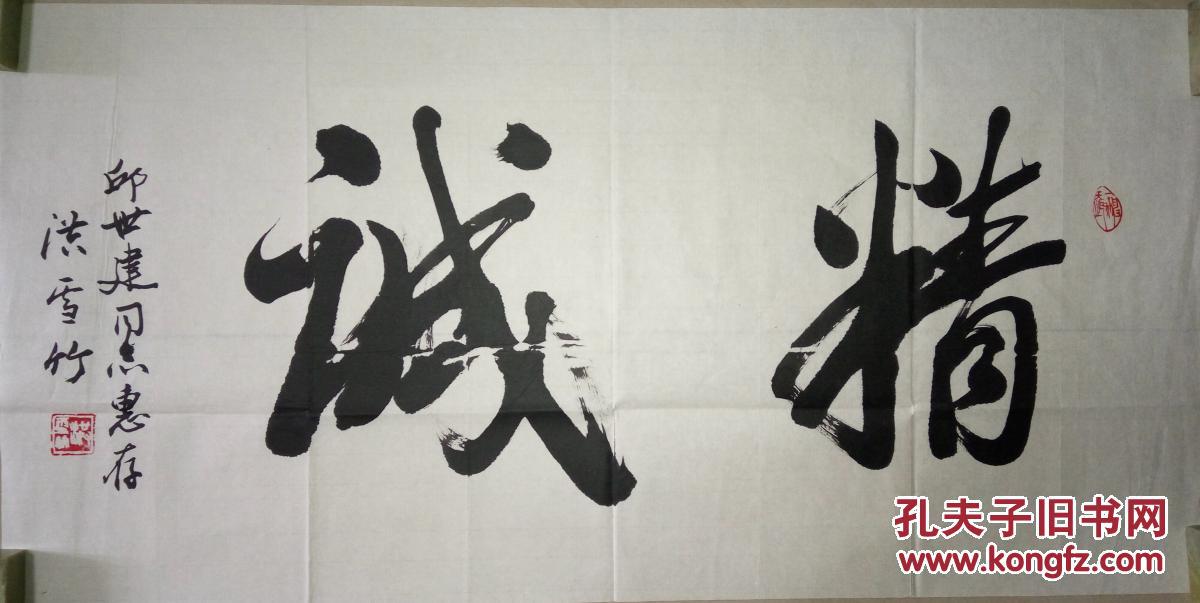 精誠
邱世建同志惠存
洪雪竹
孔夫子旧书网
www.kongfz.com